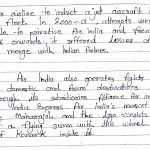 airline to induct a jet aircraft in
fleet. In 2000-01 attempts were
to privatize Air India and from
onwards, it suffered losses af
merge with Indian Airlines.
Air India also operates flights
domestic and Asian destinations
through its subsidiaries Alliance Air and
India Express. Air India's mascot
Maharajah and the logo consists
a flying swan with the wheel
of Konark inside it